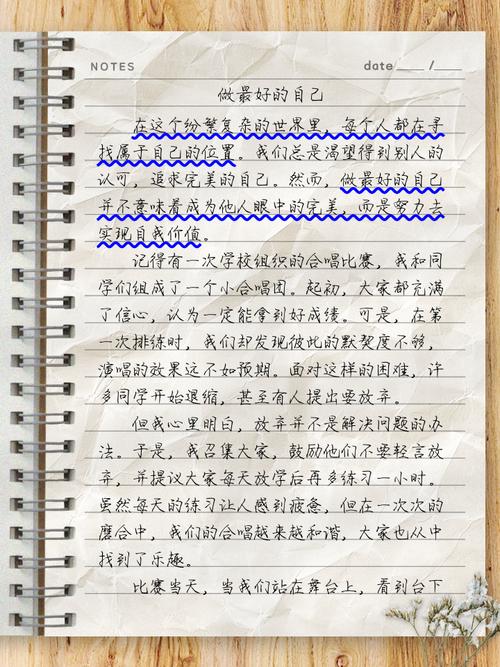 NOTES
date ____ /____
做最好的自己
在这个纷繁复杂的世界里，每个人都在寻
找属于自己的位置。我们总是渴望得到别人的
认可，追求完美的自己。然而，做最好的自己
并不意味着成为他人眼中的完美，而是努力去
实现自我价值。
记得有一次学校组织的合唱比赛，我和同
学们组成了一个小合唱团。起初，大家都充满
了信心，认为一定能拿到好成绩。可是，在第
一次排练时，我们却发现彼此的默契度不够，
演唱的效果远不如预期。面对这样的困难，许
多同学开始退缩，甚至有人提出要放弃。
但我心里明白，放弃并不是解决问题的办
法。于是，我召集大家，鼓励他们不要轻言放
弃，并提议大家每天放学后再多练习一小时。
虽然每天的练习让人感到疲惫，但在一次次的
磨合中，我们的合唱越来越和谐，大家也从中
找到了乐趣。
比赛当天，当我们站在舞台上，看到台下